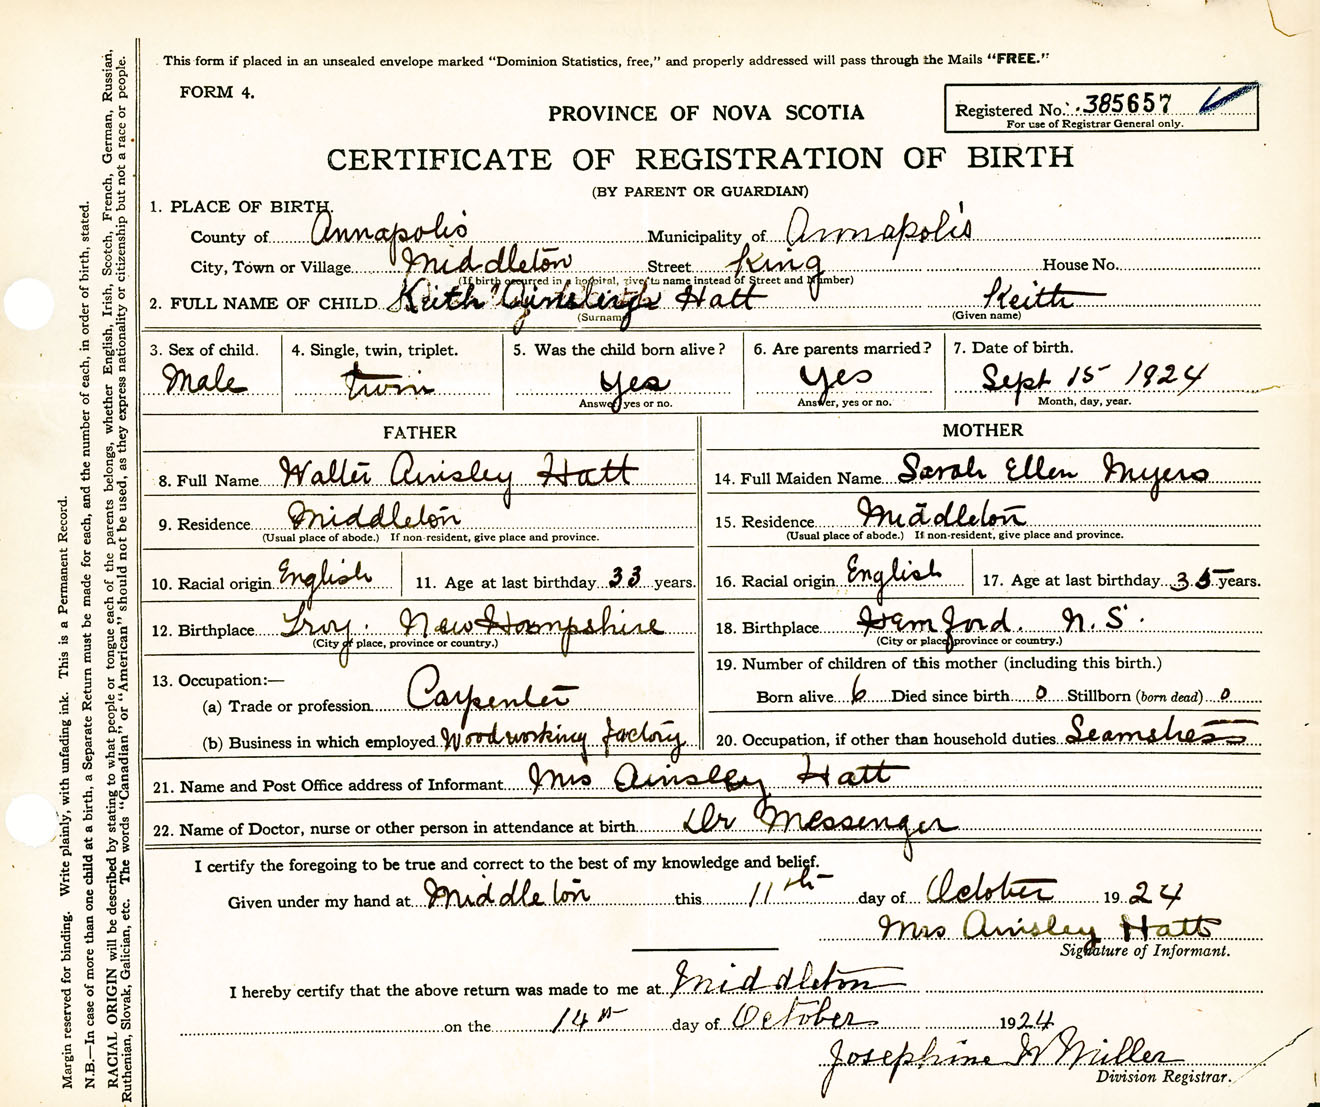 This form if placed in an unsealed envelope marked "Dominion Statistics, free," and properly addressed will pass through the Mails "FREE."
FORM 4.
Registered No. 385657
For use of Registrar General only.
PROVINCE OF NOVA SCOTIA
CERTIFICATE OF REGISTRATION OF BIRTH
(BY PARENT OR GUARDIAN)
1. PLACE OF BIRTH.
County of Annapolis Municipality of Annapolis
City, Town or Village Middleton Street King House No.
(If birth occurred in a hospital, give to name instead of Street and Number)
2. FULL NAME OF CHILD Keith Hatt Keith
(Surname) (Given name)
3. Sex of child. 4. Single, twin, triplet. 5. Was the child born alive? 6. Are parents married? 7. Date of birth.
Male twin Yes Yes Sept 15 1924
Answer, yes or no. Answer, yes or no. Month, day, year.
FATHER MOTHER
8. Full Name Walter Ainsley Hatt 14. Full Maiden Name Sarah Ellen Myers
9. Residence Middleton 15. Residence Middleton
(Usual place of abode.) If non-resident, give place and province. (Usual place of abode.) If non-resident, give place and province.
10. Racial origin English 11. Age at last birthday 33 years. 16. Racial origin English 17. Age at last birthday 35 years.
12. Birthplace Troy. New Hampshire 18. Birthplace Hemford. N.S.
(City or place, province or country.) (City or place, province or country.)
13. Occupation:— 19. Number of children of this mother (including this birth.)
(a) Trade or profession Carpenter Born alive 6 Died since birth 0 Stillborn (born dead) 0
(b) Business in which employed Woodworking factory 20. Occupation, if other than household duties Seamstress
21. Name and Post Office address of Informant Mrs Ainsley Hatt
22. Name of Doctor, nurse or other person in attendance at birth Dr Messenger
I certify the foregoing to be true and correct to the best of my knowledge and belief.
Given under my hand at Middleton this 11th day of October 1924
Mrs Ainsley Hatt
Signature of Informant.
I hereby certify that the above return was made to me at Middleton
on the 14th day of October 1924
Josephine W Miller
Division Registrar.
Margin reserved for binding. Write plainly, with unfading ink. This is a Permanent Record.
N.B.—In case of more than one child at a birth, a Separate Return must be made for each, and the number of each, in order of birth, stated.
RACIAL ORIGIN will be described by stating to what people or tongue each of the parents belongs, whether English, Irish, Scotch, French, German, Russian,
Ruthenian, Slovak, Galician, etc. The words "Canadian" or "American" should not be used, as they express nationality or citizenship but not a race or people.